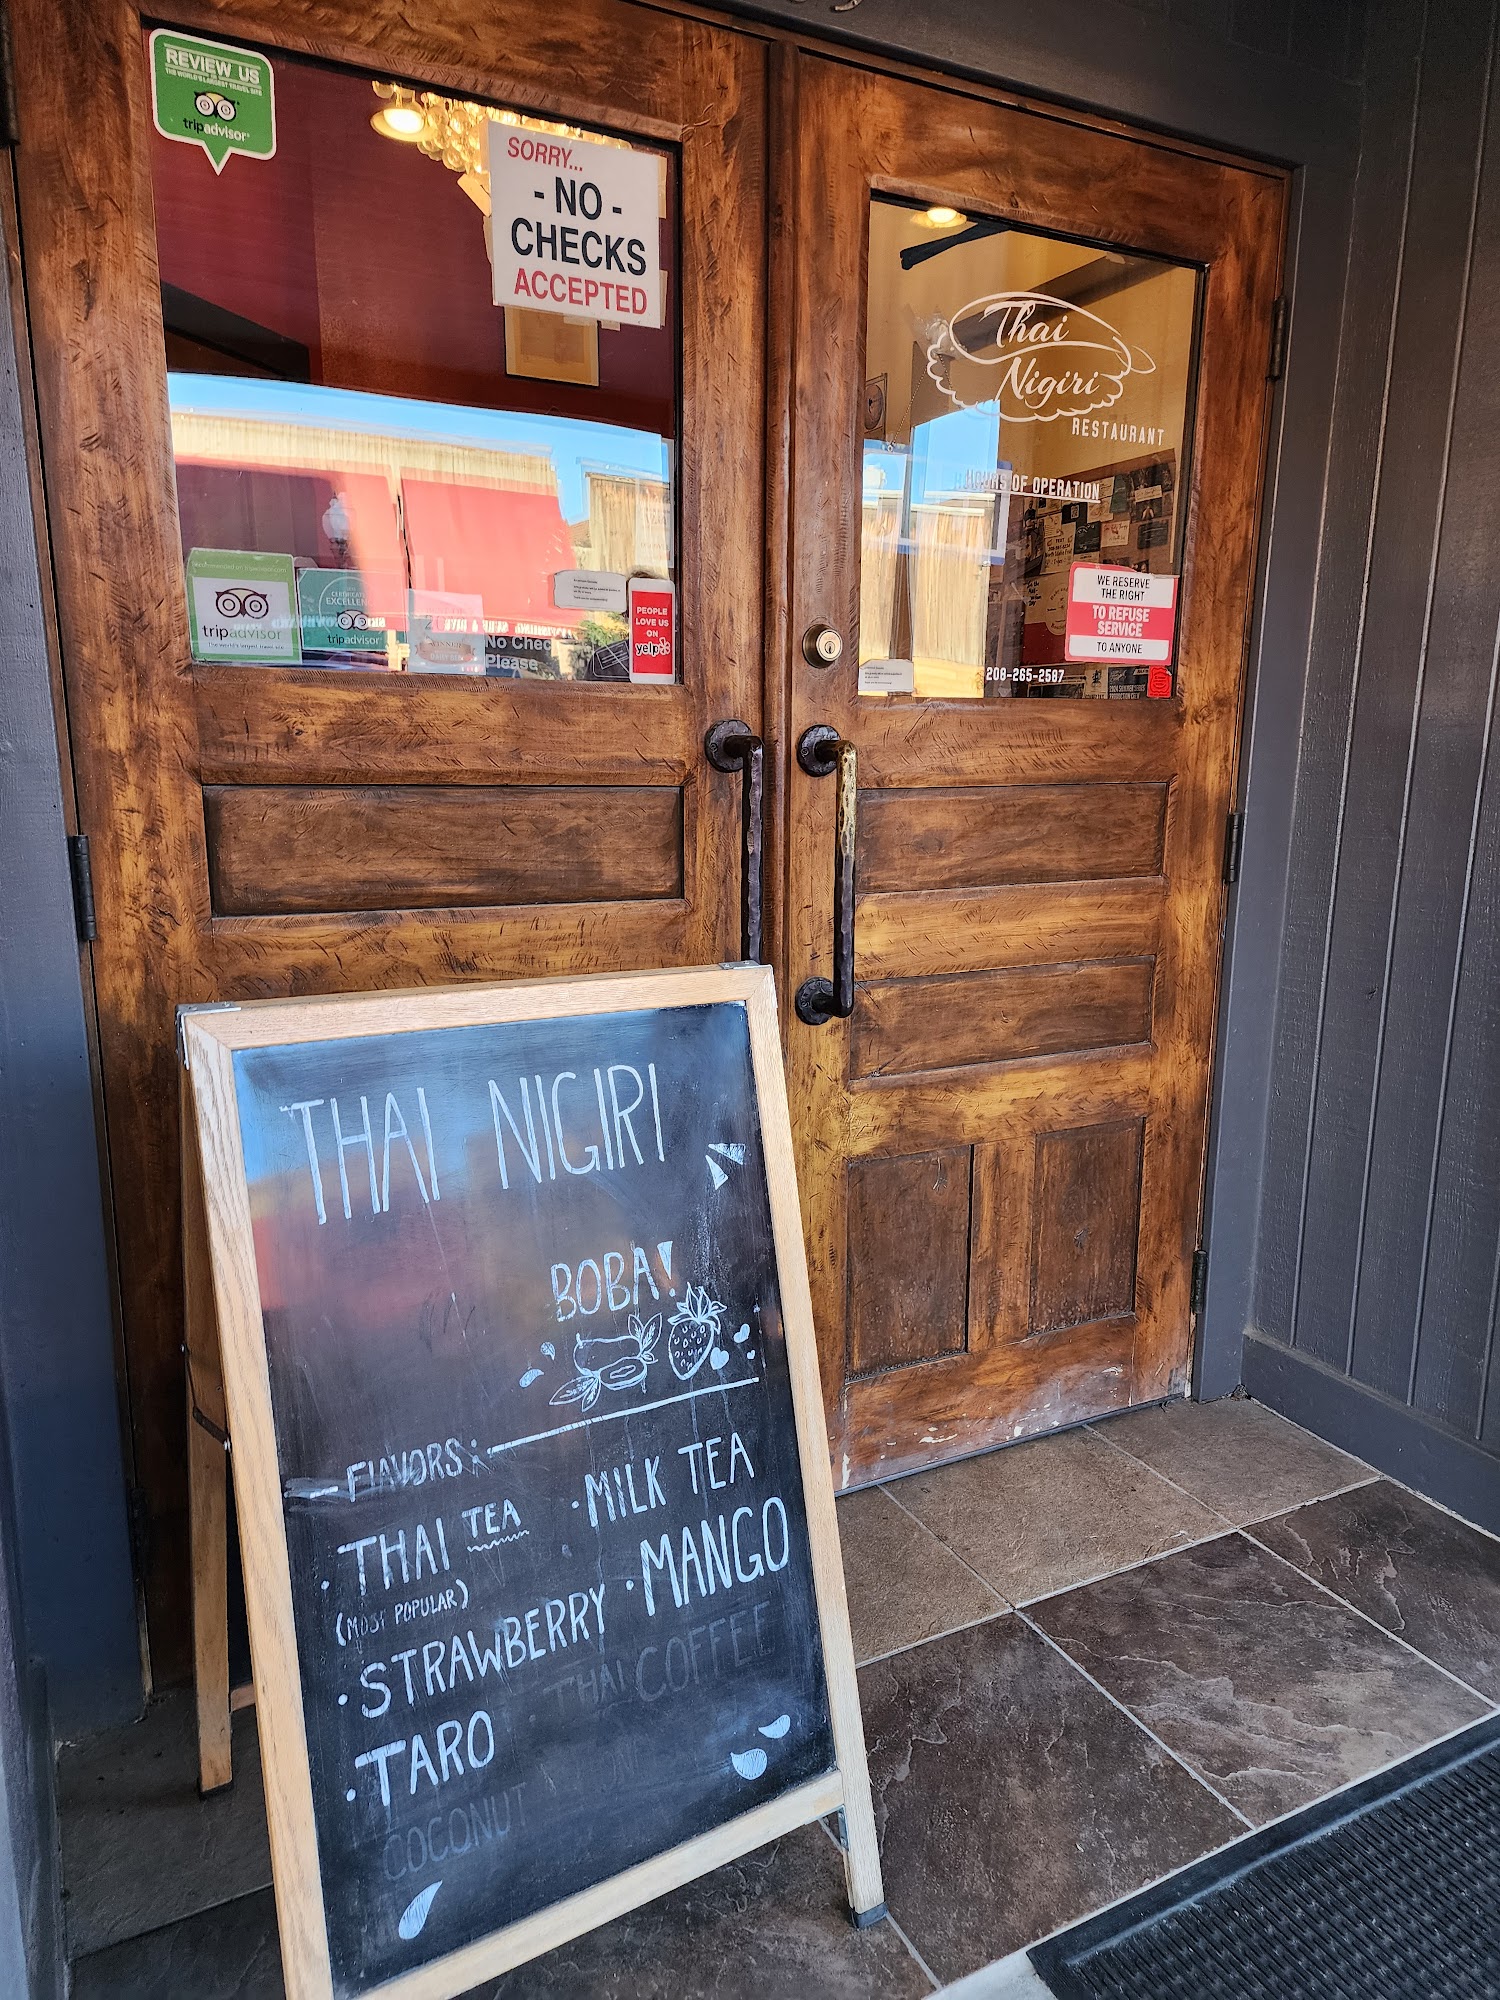 REVIEW US
THE WORLD'S LARGEST TRAVEL SITE
tripadvisor
SORRY...
- NO -
CHECKS
ACCEPTED
Thai
Nigiri
RESTAURANT
HOURS OF OPERATION
WE RESERVE
THE RIGHT
TO REFUSE
SERVICE
TO ANYONE
208-265-2587
tripadvisor
The world's largest travel site
CERTIFICATE
EXCELLENCE
tripadvisor
WINNER
No Chec
Please
PEOPLE
LOVE US
ON
yelp
THAI NIGIRI
BOBA!
FLAVORS:
· THAI TEA
(MOST POPULAR)
· MILK TEA
· STRAWBERRY
· MANGO
· TARO
· THAI COFFEE
COCONUT